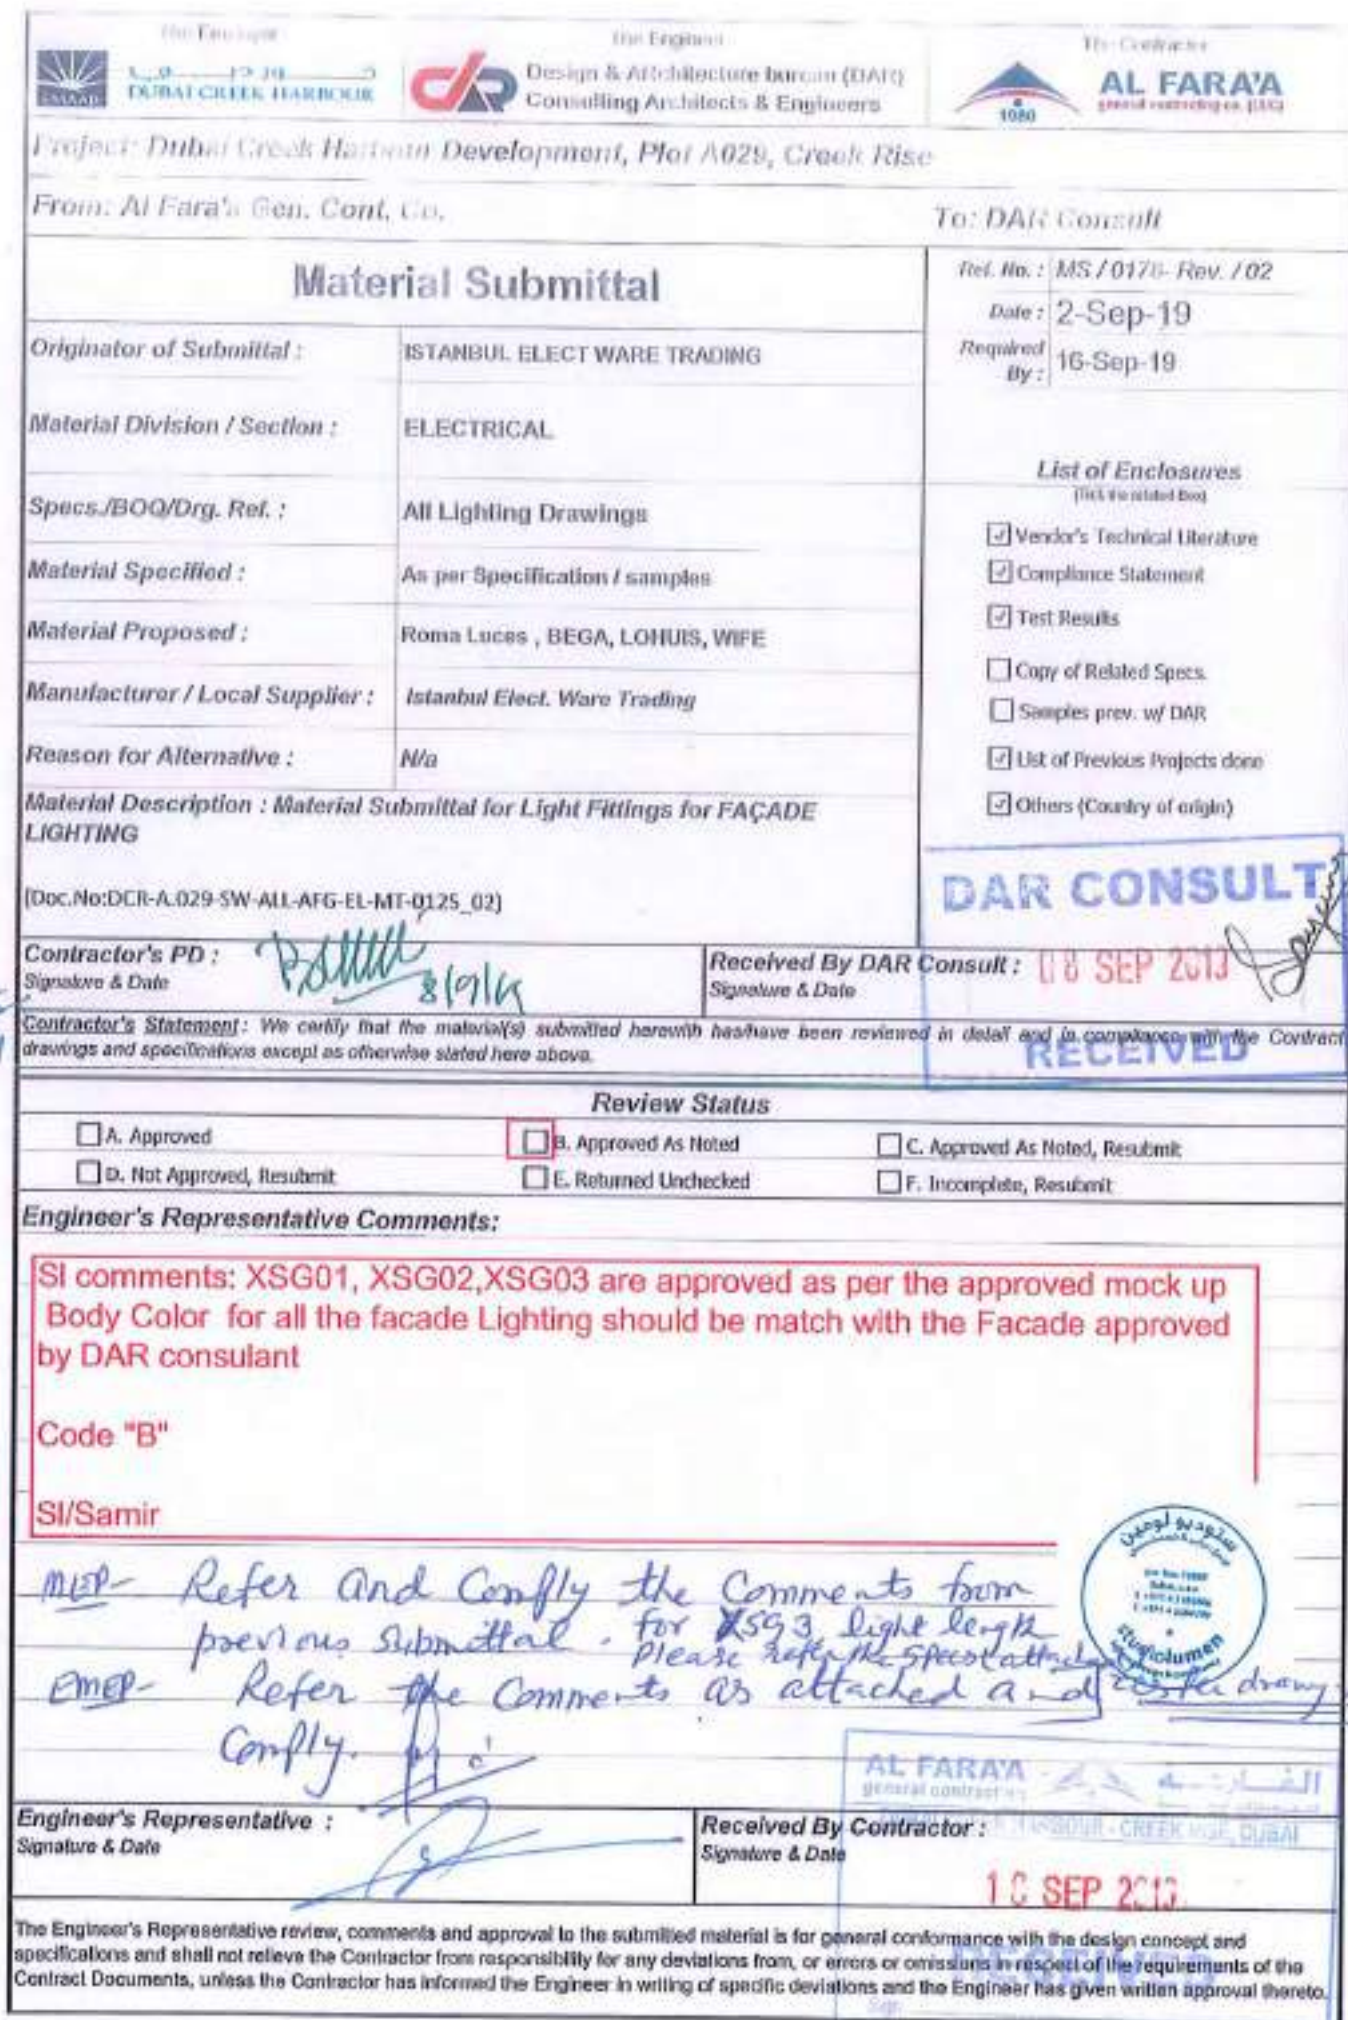 The Employer
The Engineer
The Contractor
EMAAR
DUBAI CREEK HARBOUR
dar
Design & Architecture bureau (DAR)
Consulting Architects & Engineers
1980
AL FARA'A
general contracting co. (LLC)
Project: Dubai Creek Harbour Development, Plot A029, Creek Rise
From: Al Fara'a Gen. Cont. Co.
To: DAR Consult
Material Submittal
Ref. No. : MS / 0178- Rev. / 02
Date : 2-Sep-19
Required By : 16-Sep-19
Originator of Submittal : ISTANBUL ELECT WARE TRADING
Material Division / Section : ELECTRICAL
Specs./BOQ/Drg. Ref. : All Lighting Drawings
Material Specified : As per Specification / samples
Material Proposed : Roma Luces , BEGA, LOHUIS, WIFE
Manufacturer / Local Supplier : Istanbul Elect. Ware Trading
Reason for Alternative : N/a
List of Enclosures
(Tick the related Box)
Vendor's Technical Literature
Compliance Statement
Test Results
Copy of Related Specs.
Samples prev. w/ DAR
List of Previous Projects done
Others (Country of origin)
Material Description : Material Submittal for Light Fittings for FAÇADE
LIGHTING
(Doc.No:DCR-A.029-SW-ALL-AFG-EL-MT-0125_02)
DAR CONSULT
Contractor's PD :
Signature & Date
8/9/19
Received By DAR Consult :
Signature & Date
08 SEP 2019
RECEIVED
Contractor's Statement: We certify that the material(s) submitted herewith has/have been reviewed in detail and in compliance with the Contract
drawings and specifications except as otherwise stated here above.
Review Status
A. Approved
B. Approved As Noted
C. Approved As Noted, Resubmit
D. Not Approved, Resubmit
E. Returned Unchecked
F. Incomplete, Resubmit
Engineer's Representative Comments:
Sl comments: XSG01, XSG02,XSG03 are approved as per the approved mock up
Body Color for all the facade Lighting should be match with the Facade approved
by DAR consulant
Code "B"
Sl/Samir
ستوديو لومين
studiolumen
MEP- Refer and Comply the Comments from
previous submittal. for XSG3 light length
Please refer the specs attached
EMEP- Refer the Comments as attached and
Comply.
AL FARA'A
general contracting
HARBOUR - CREEK RISE, DUBAI
Engineer's Representative :
Signature & Date
Received By Contractor :
Signature & Date
10 SEP 2019
RECEIVED
Sign
The Engineer's Representative review, comments and approval to the submitted material is for general conformance with the design concept and
specifications and shall not relieve the Contractor from responsibility for any deviations from, or errors or omissions in respect of the requirements of the
Contract Documents, unless the Contractor has informed the Engineer in writing of specific deviations and the Engineer has given written approval thereto.